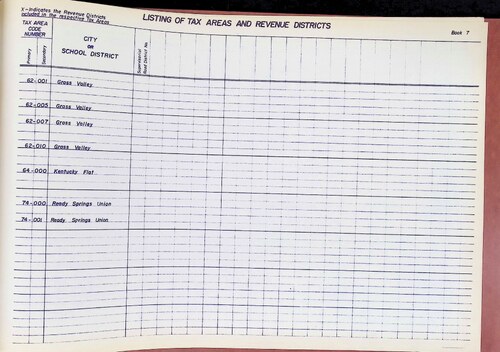 X-Indicates the Revenue Districts
included in the respective Tax Areas
LISTING OF TAX AREAS AND REVENUE DISTRICTS
Book 7
TAX AREA
CODE
NUMBER
Primary
Secondary
CITY
OR
SCHOOL DISTRICT
Supervisorial
Road District No.
62-001 Grass Valley
62-005 Grass Valley
62-007 Grass Valley
62-010 Grass Valley
64-000 Kentucky Flat
74-000 Ready Springs Union
74-001 Ready Springs Union